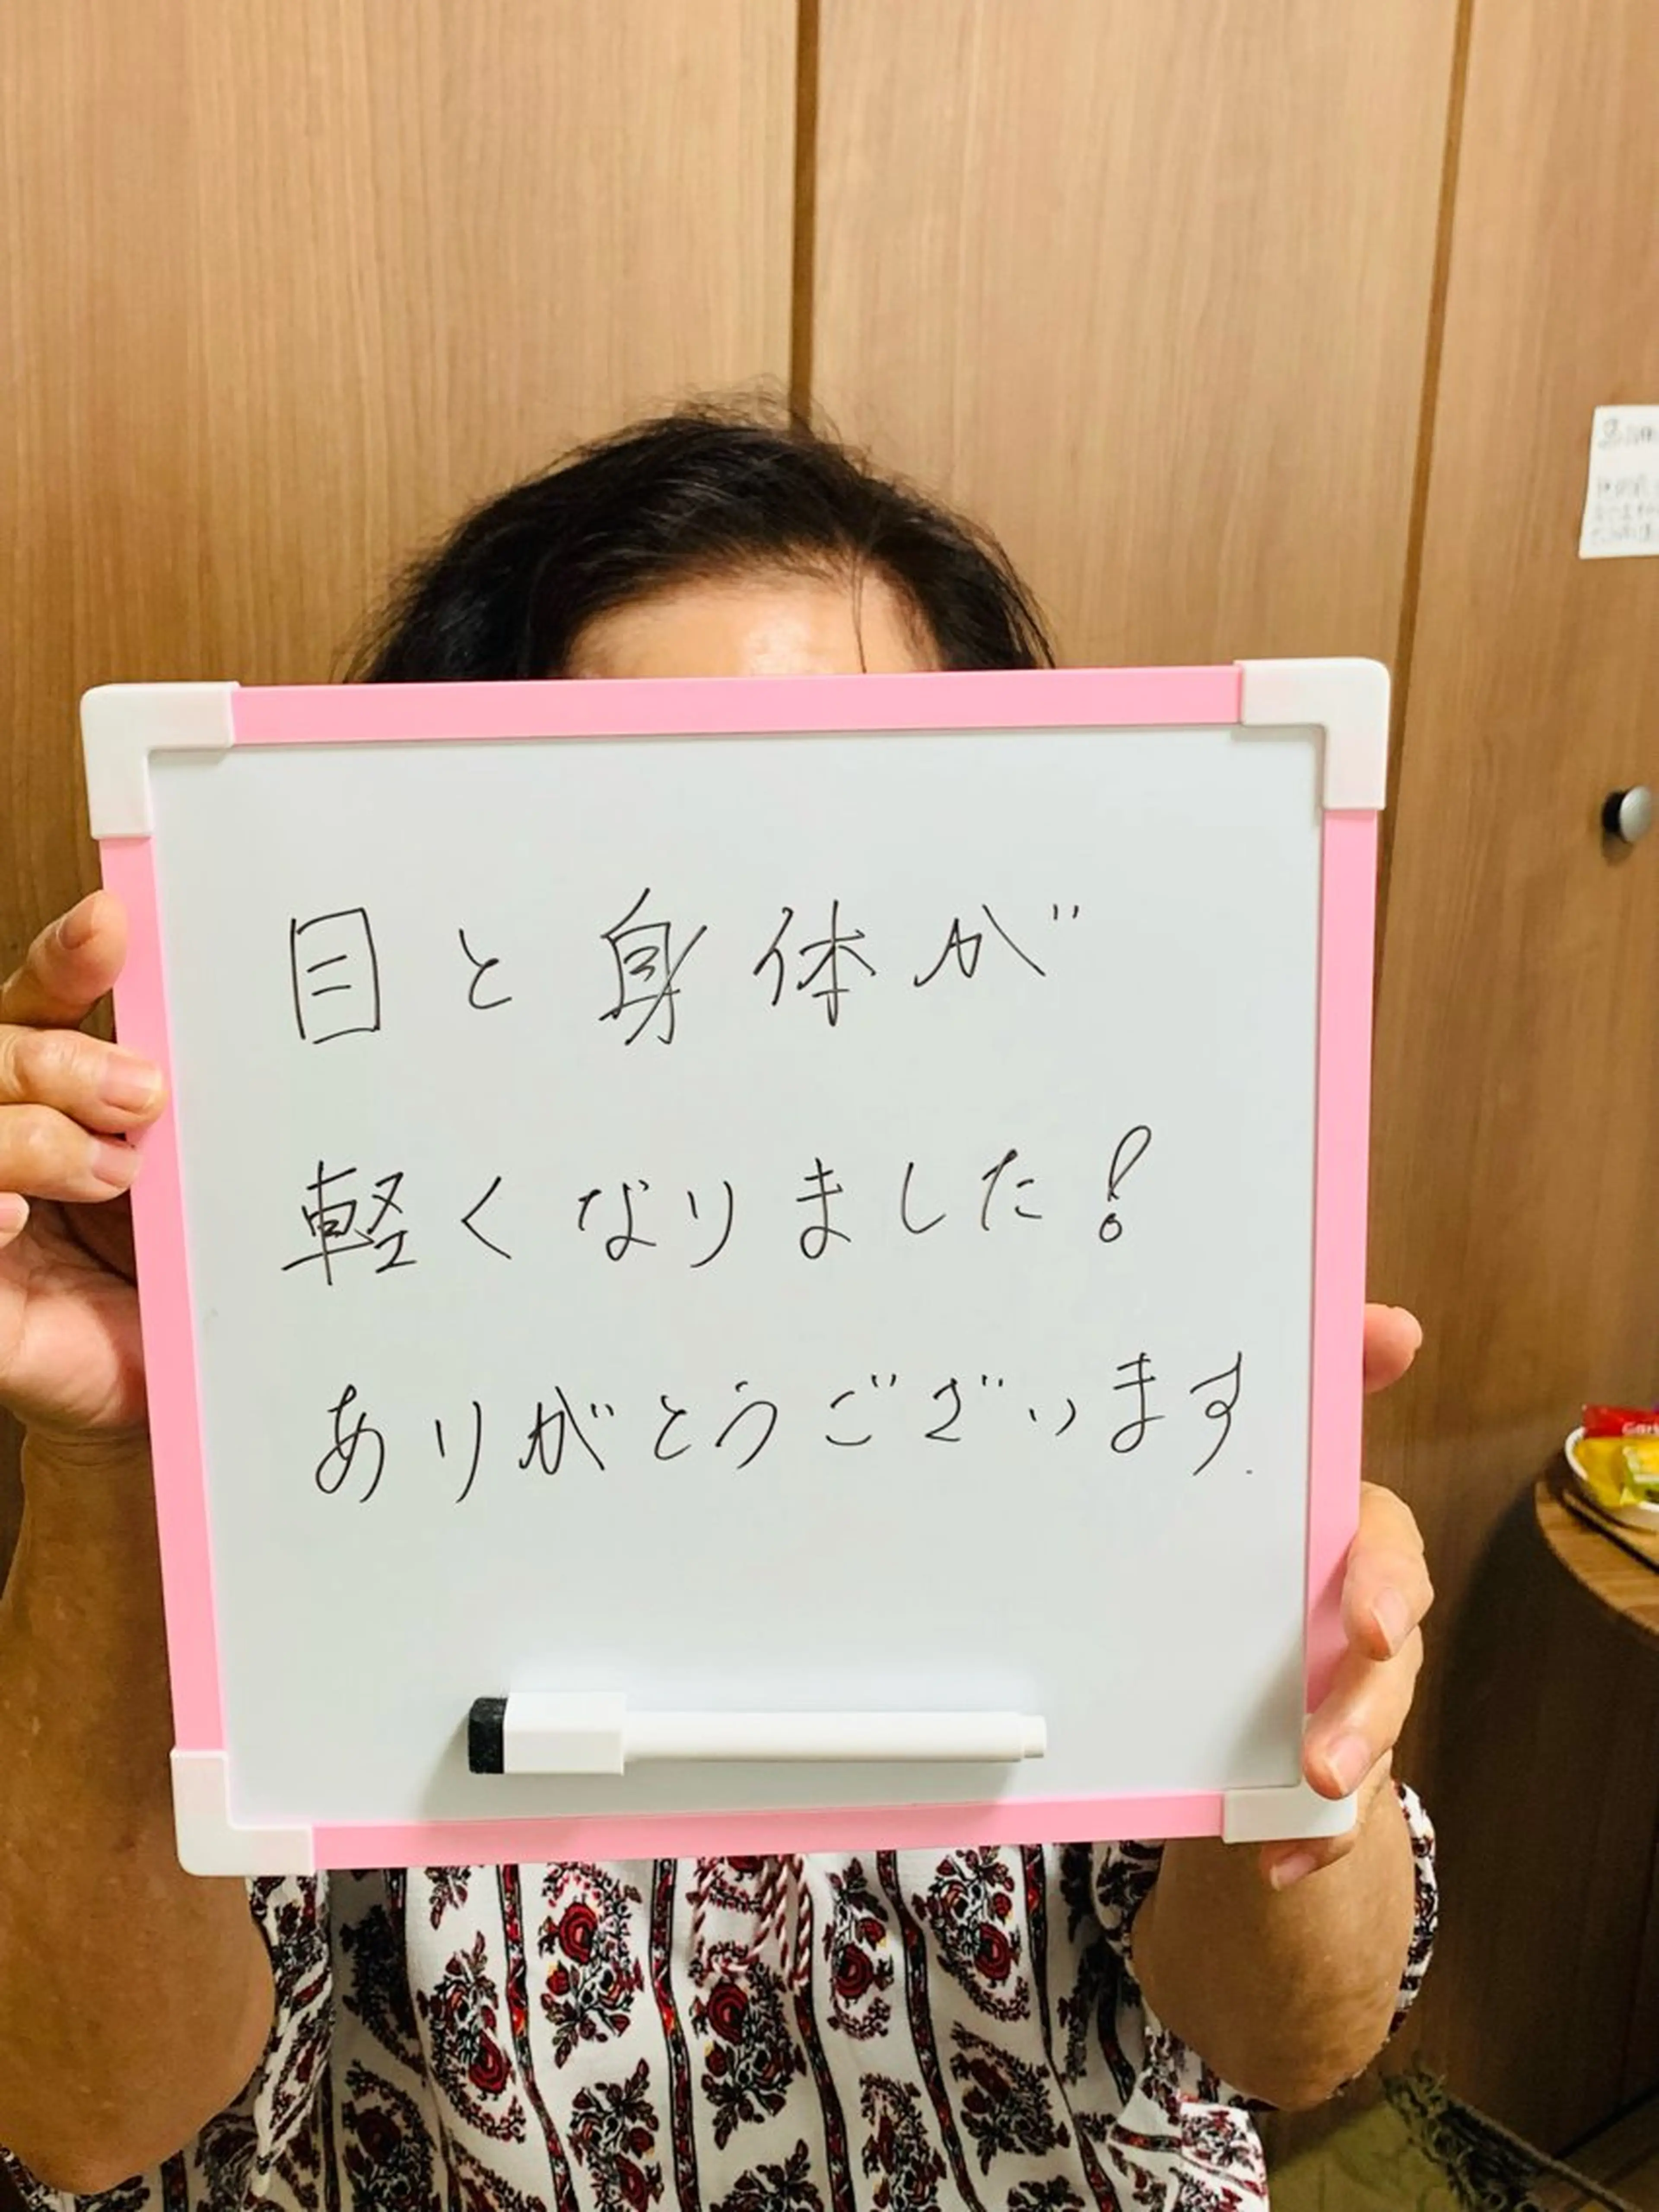 目と身体が
軽くなりました!
ありがとうございます.